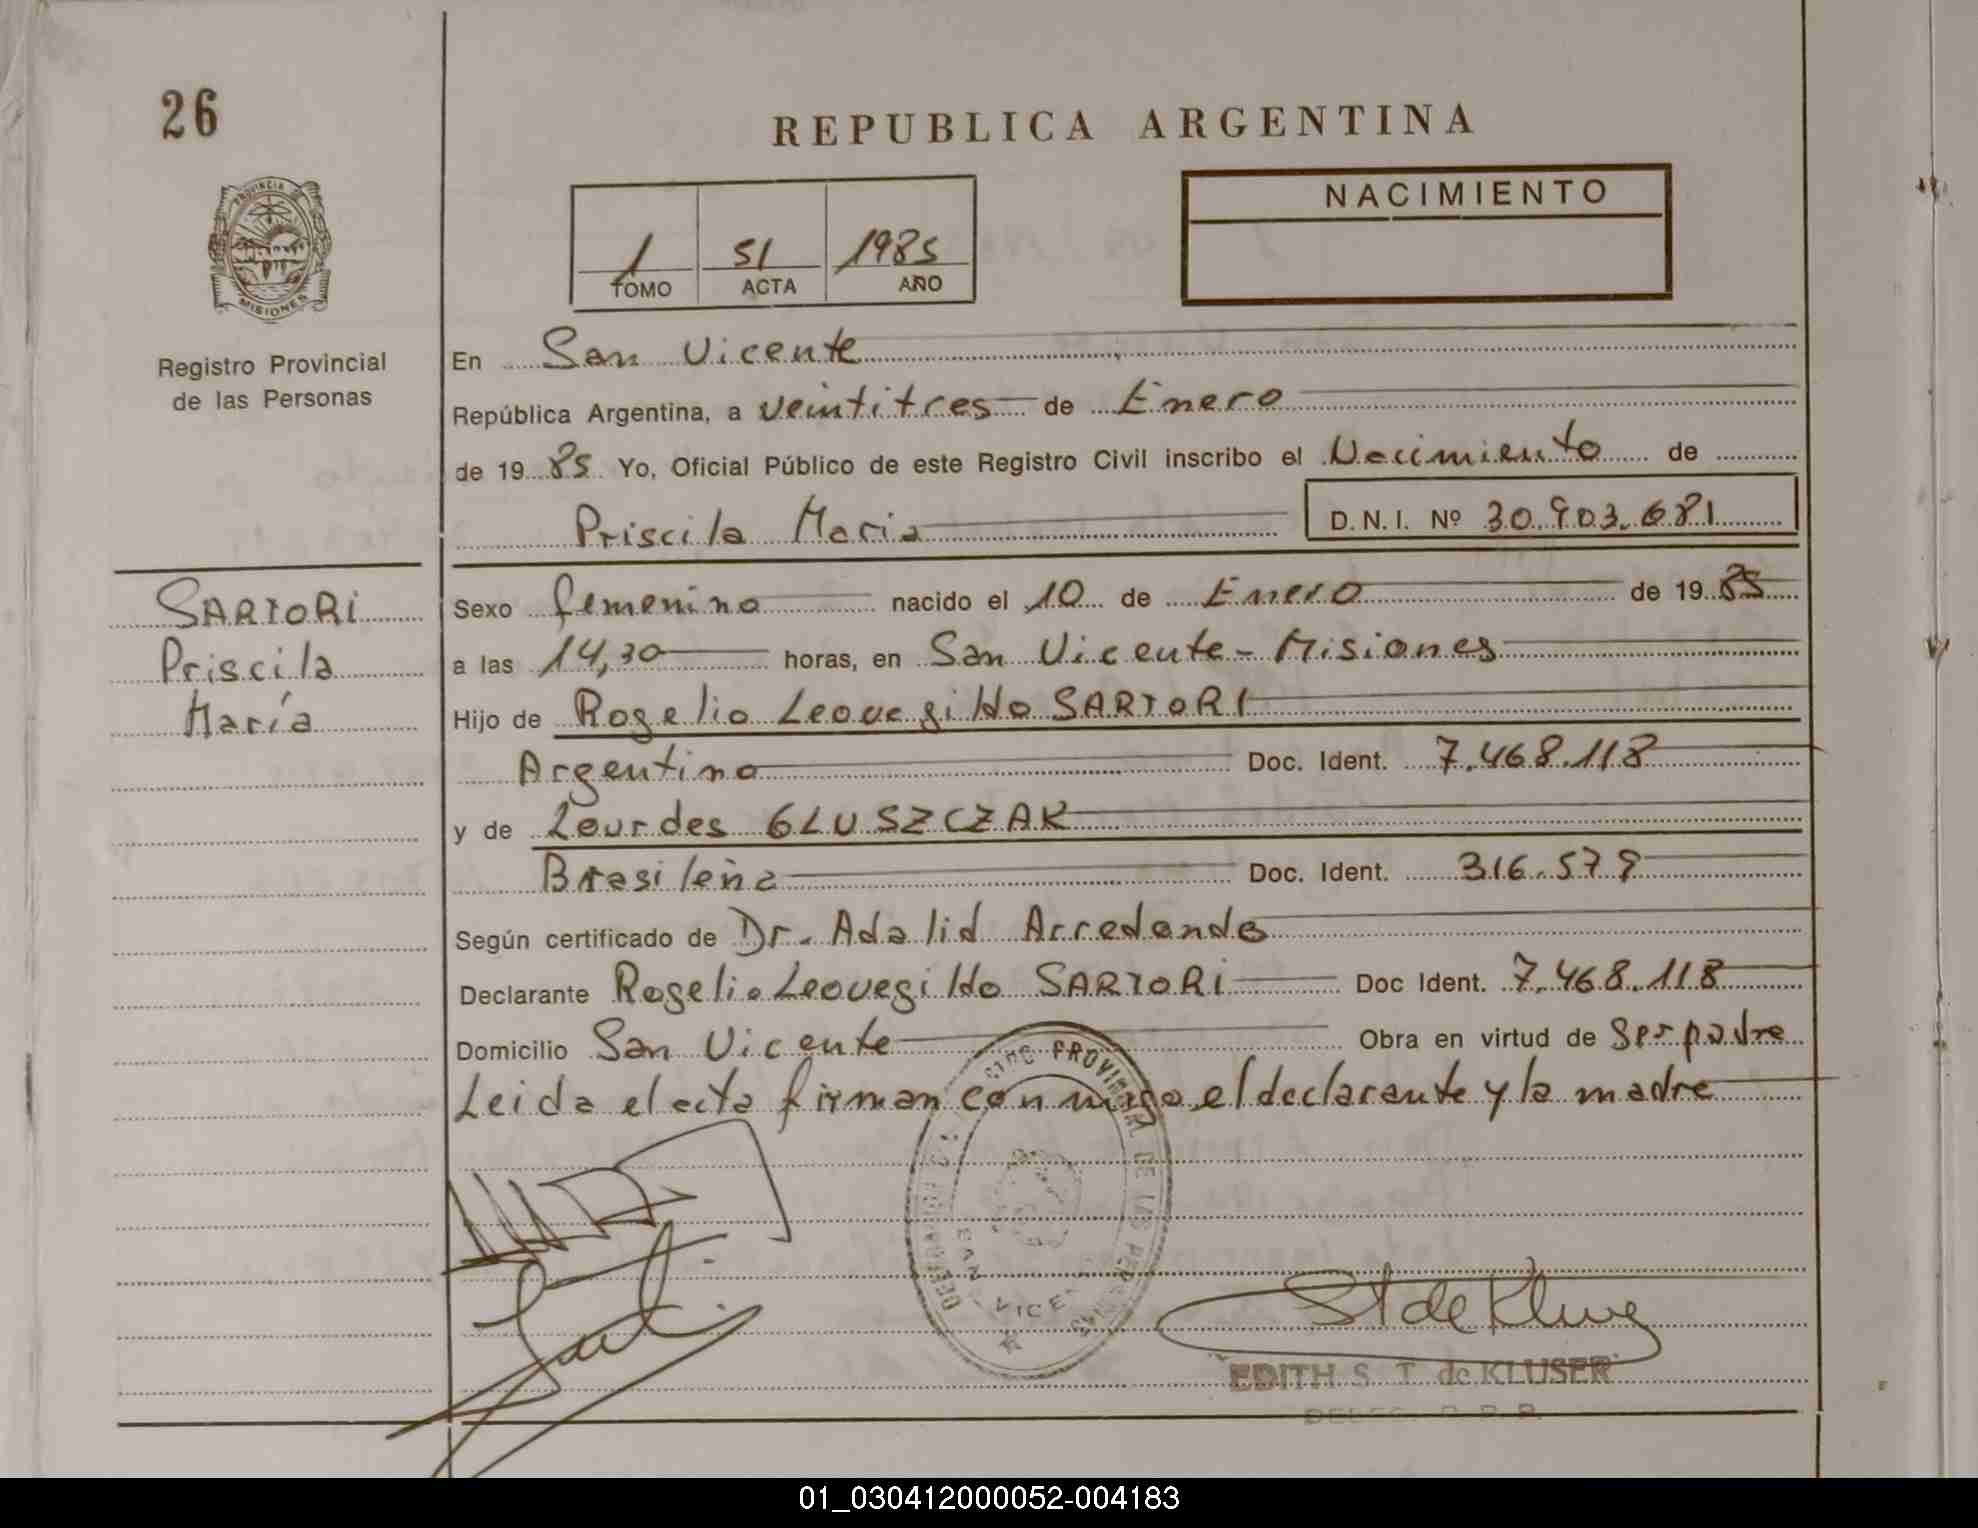 26
REPUBLICA ARGENTINA
NACIMIENTO
1 51 1985
TOMO ACTA AÑO
PROVINCIA DE
MISIONES
Registro Provincial
de las Personas
En San Vicente
República Argentina, a veintitres de Enero
de 1985 Yo, Oficial Público de este Registro Civil inscribo el Nacimiento de
Priscila Maria D.N.I. Nº 30.903.681
SARTORI
Priscila
María
Sexo femenino nacido el 10 de Enero de 1985
a las 14,30 horas, en San Vicente - Misiones
Hijo de Rogelio Leovegildo SARTORI
Argentino Doc. Ident. 7.468.118
y de Lourdes GLUSZCZAK
Brasileña Doc. Ident. 316.579
Según certificado de Dr. Adalid Arredondo
Declarante Rogelio Leovegildo SARTORI Doc Ident. 7.468.118
Domicilio San Vicente Obra en virtud de Ser padre
Leida el acta firman conmigo el declarante y la madre
PROVINCIAL DE LAS PERSONAS
SAN VICE
EDITH S. T. de KLUSER
DELEG. R. P. P.
01_030412000052-004183